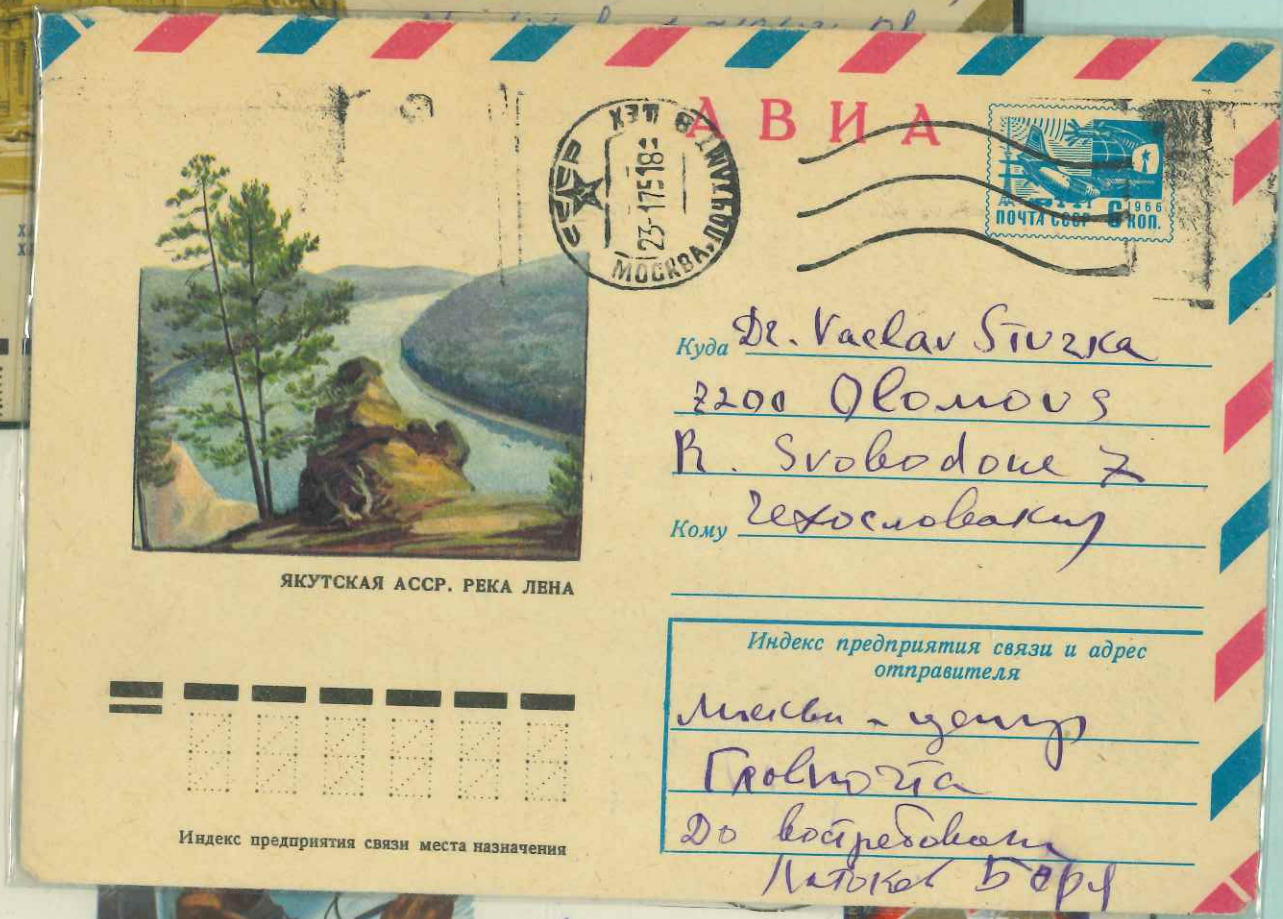 АВИА
МОСКВА, ПОЧТАМТ
СССР
23-1 75 18
ЦЕХ
ПОЧТА СССР 6 КОП.
1966
Куда Dr. Vaclav Stuzka
7200 Olomouc
R. Svobodoue 7
Кому Чехословакия
ЯКУТСКАЯ АССР. РЕКА ЛЕНА
Индекс предприятия связи и адрес
отправителя
Москва - центр
Главпочта
До востребован
Индекс предприятия связи места назначения